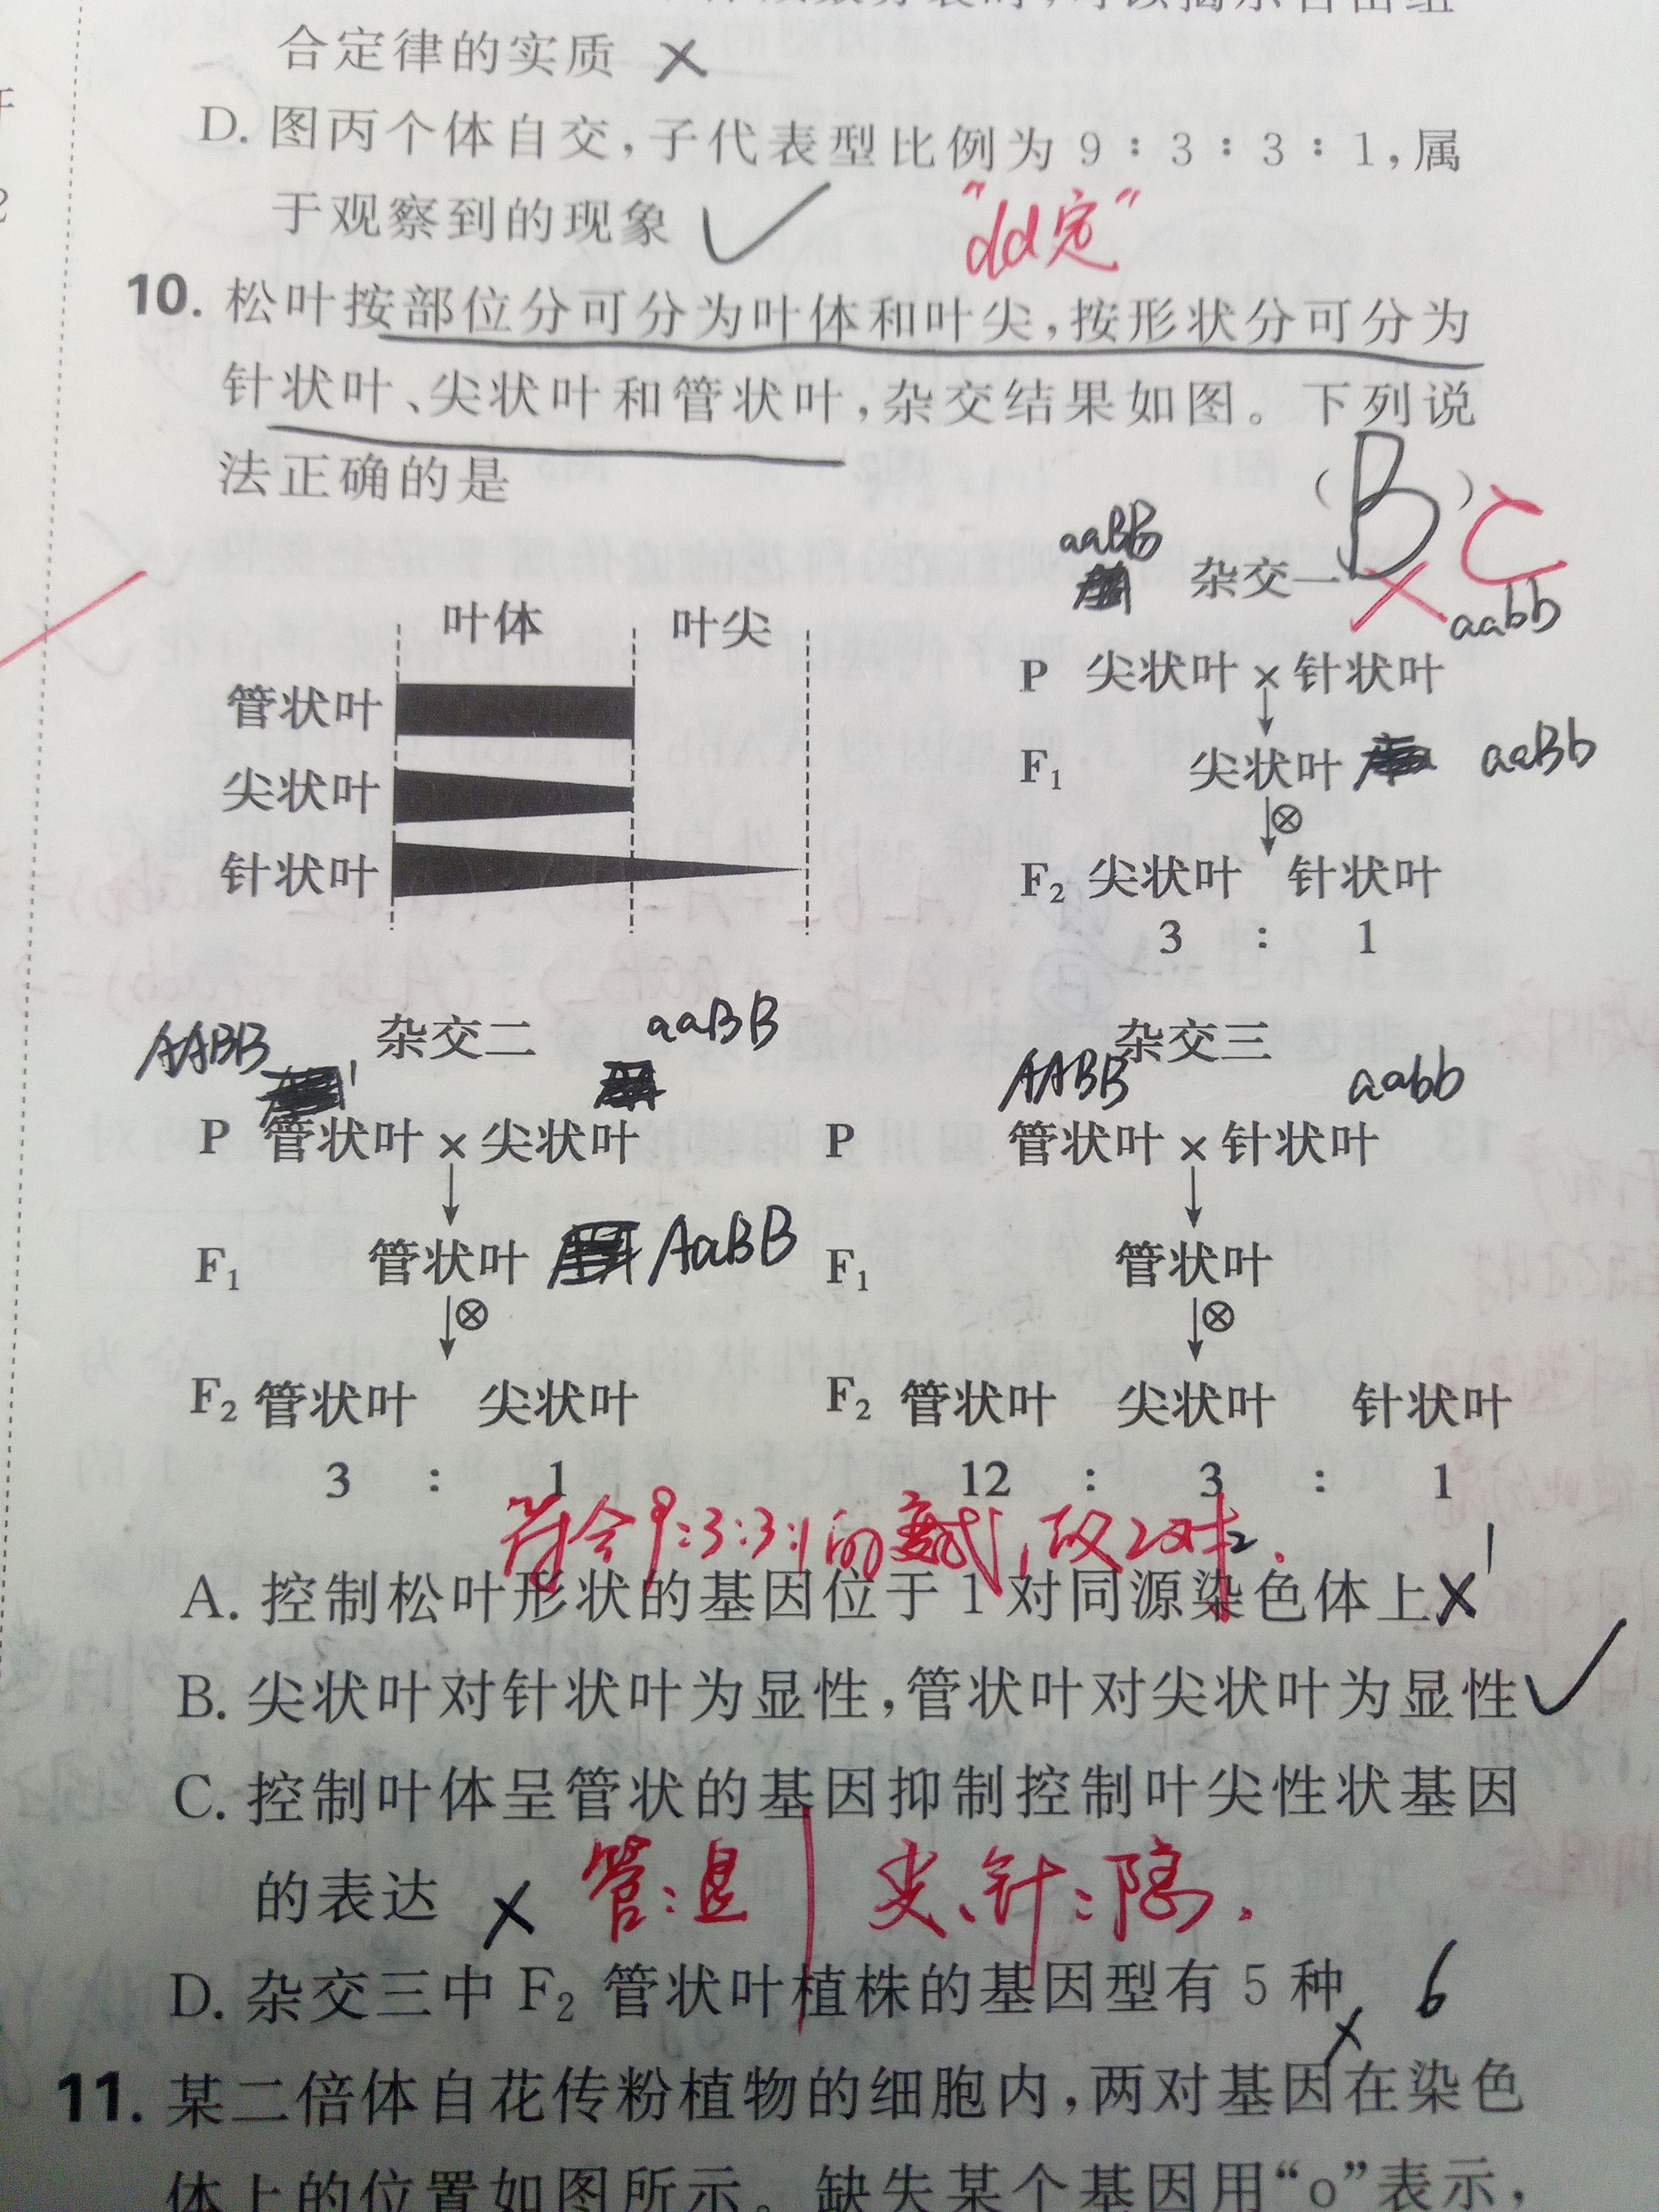 合定律的实质 ×
D. 图丙个体自交,子代表型比例为 9∶3∶3∶1,属
于观察到的现象 ✓
10. 松叶按部位分可分为叶体和叶尖,按形状分可分为
针状叶、尖状叶和管状叶,杂交结果如图。下列说
法正确的是 ( B ) C
叶体 叶尖
管状叶
尖状叶
针状叶
aaBB
杂交一
aabb
P 尖状叶 × 针状叶
F₁ 尖状叶 aaBb
⊗
F₂ 尖状叶 针状叶
3 : 1
AABB 杂交二 aaBB
P 管状叶 × 尖状叶
F₁ 管状叶 AaBB
⊗
F₂ 管状叶 尖状叶
3 : 1
杂交三
AABB aabb
P 管状叶 × 针状叶
F₁ 管状叶
⊗
F₂ 管状叶 尖状叶 针状叶
12 : 3 : 1
符合9:3:3:1的变式,故2对
2
A. 控制松叶形状的基因位于 1 对同源染色体上 ×
B. 尖状叶对针状叶为显性,管状叶对尖状叶为显性 ✓
C. 控制叶体呈管状的基因抑制控制叶尖性状基因
的表达 × 管:显 尖、针:隐.
D. 杂交三中 F₂ 管状叶植株的基因型有 5 种 × 6
11. 某二倍体自花传粉植物的细胞内,两对基因在染色
体上的位置如图所示。缺失某个基因用“o”表示,